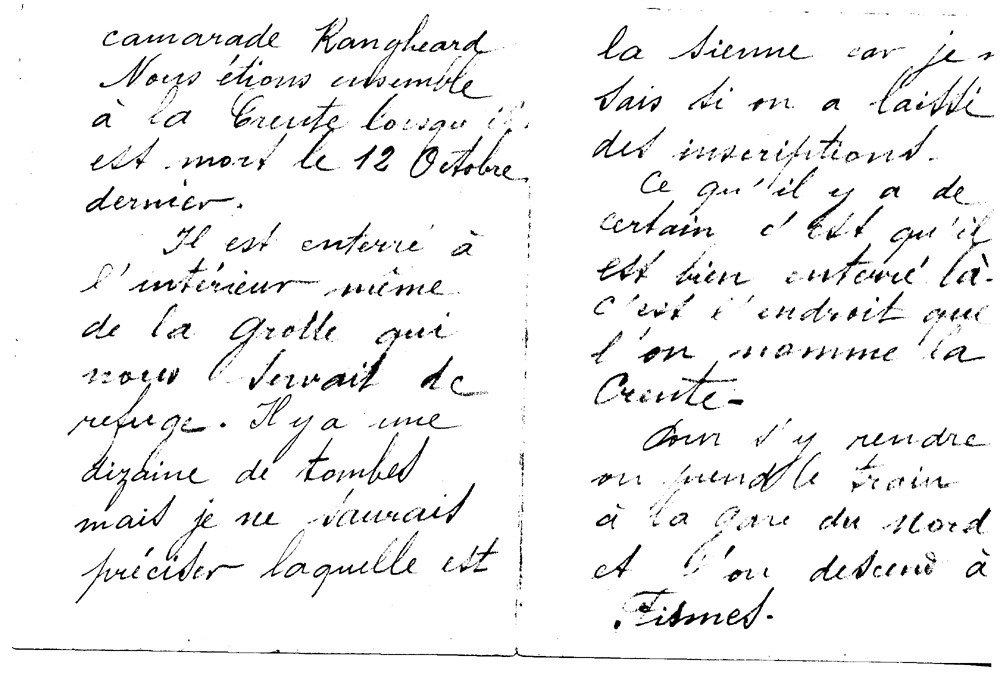 camarade Rangheard
Nous étions ensemble
à la Creute lorsqu'il
est mort le 12 Octobre
dernier.
Il est enterré à
l'intérieur même
de la Grotte qui
nous servait de
refuge. Il y a une
dizaine de tombes
mais je ne saurais
préciser laquelle est
la sienne car je n
sais si on a laissé
des inscriptions.
Ce qu'il y a de
certain c'est qu'il
est bien enterré là.
c'est l'endroit que
l'on nomme la
Creute.
Pour s'y rendre
on prend le train
à la gare du Nord
et l'on descend à
Fismes.